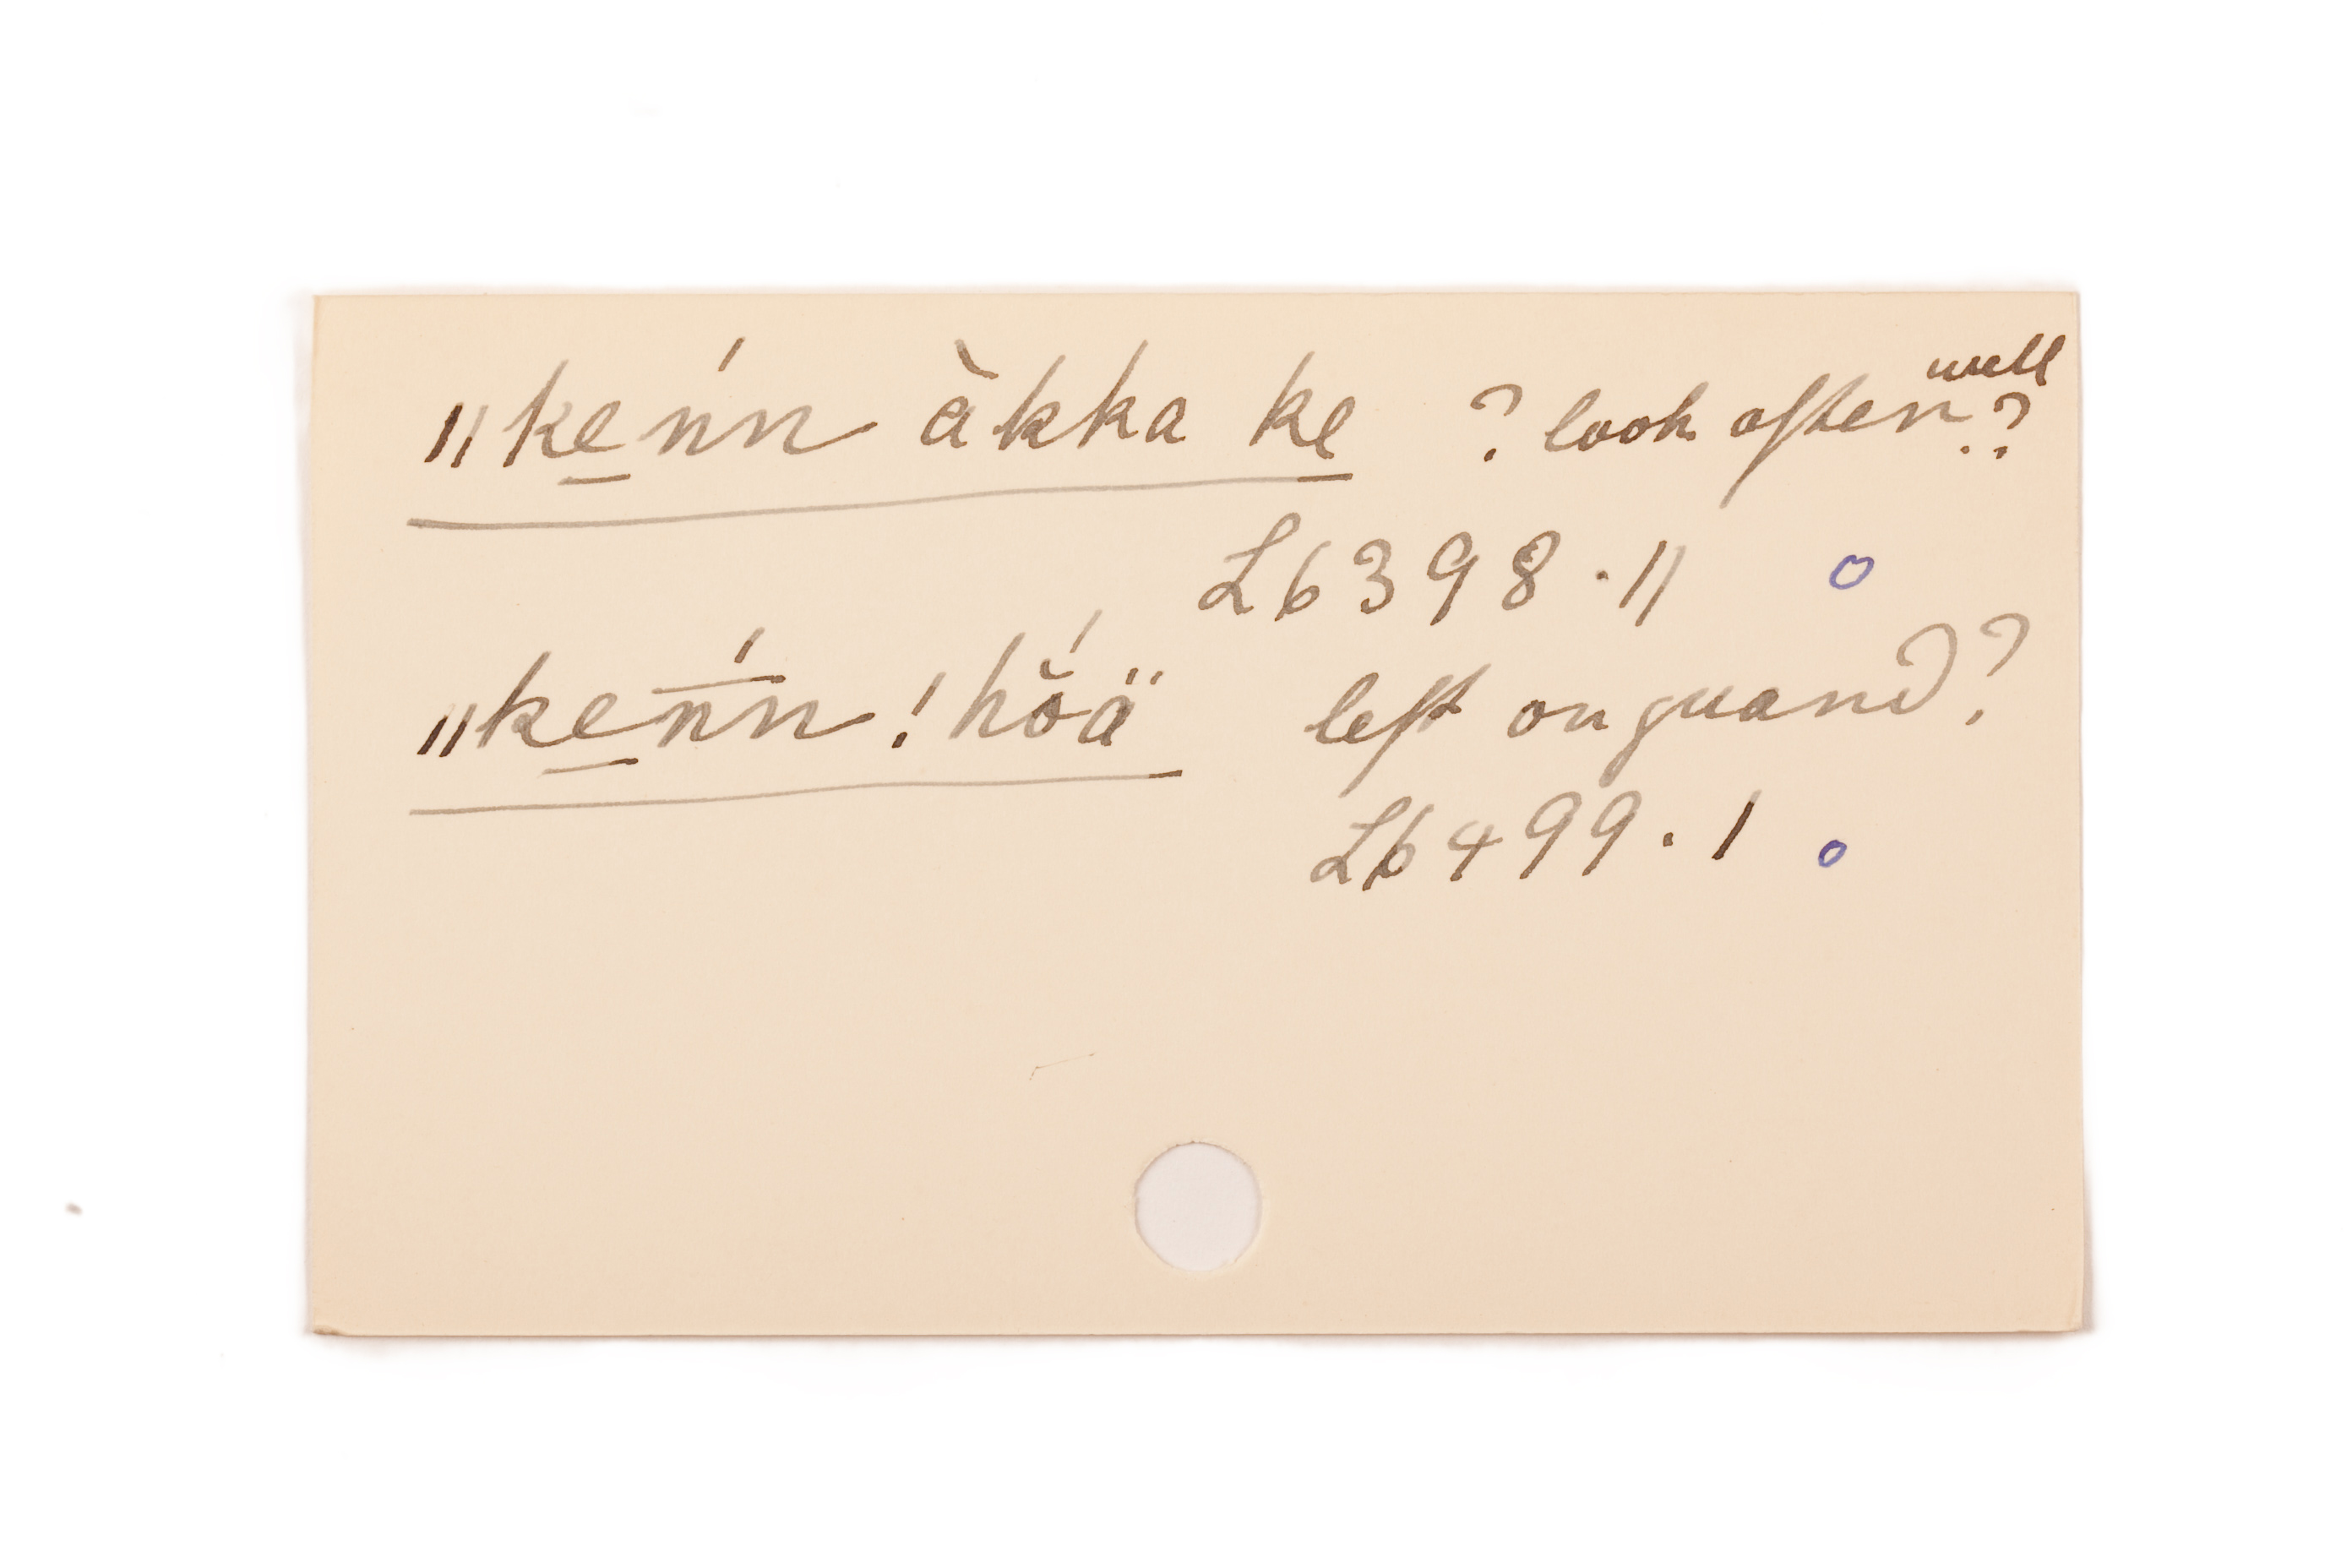 ǁke̱ńn àkka ke̱ ? look after well.?
L6398.11 o
ǁke̱n̄́n !hŏ́ä left on guard?
L6499.1 o